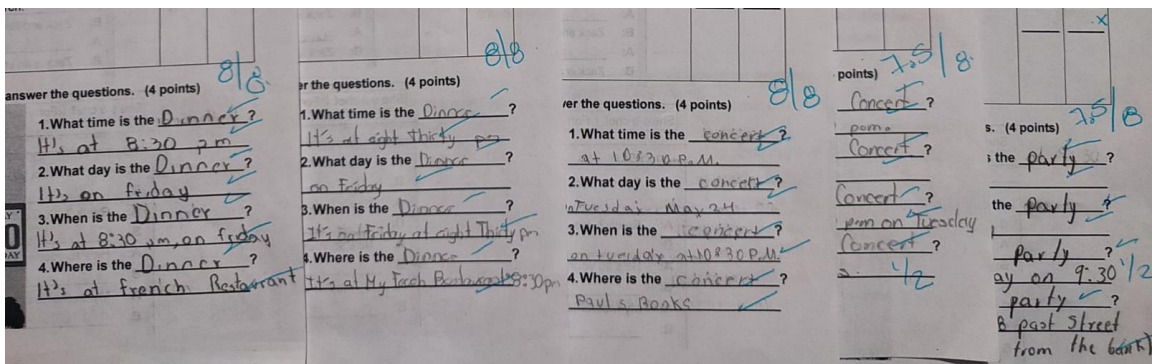 8/8
answer the questions. (4 points)
1.What time is the Dinner?
It's at 8:30 pm
2.What day is the Dinner?
It's on friday
3.When is the Dinner?
It's at 8:30 pm, on friday
4.Where is the Dinner?
It's at french Restaurant
8/8
er the questions. (4 points)
1.What time is the Dinner?
It's at eight thirty pm
2.What day is the Dinner?
on Friday
3.When is the Dinner?
It's on Friday at eight Thirty pm
4.Where is the Dinner?
It's at My French 8:30pm
8/8
ver the questions. (4 points)
1.What time is the concert?
at 10:30 P.M.
2.What day is the concert?
nTuesday May 24
3.When is the concert?
on tuesday at 10:30 P.M.
4.Where is the concert?
Paul's Books
7.5/8
points)
Concert?
p.m.
Concert?
Concert?
p.m on Tuesday
Concert?
1/2
x
7.5/8
s. (4 points)
s the party?
the party?
party?
ay on 9:30 1/2
party?
8 past Street
from the bank)